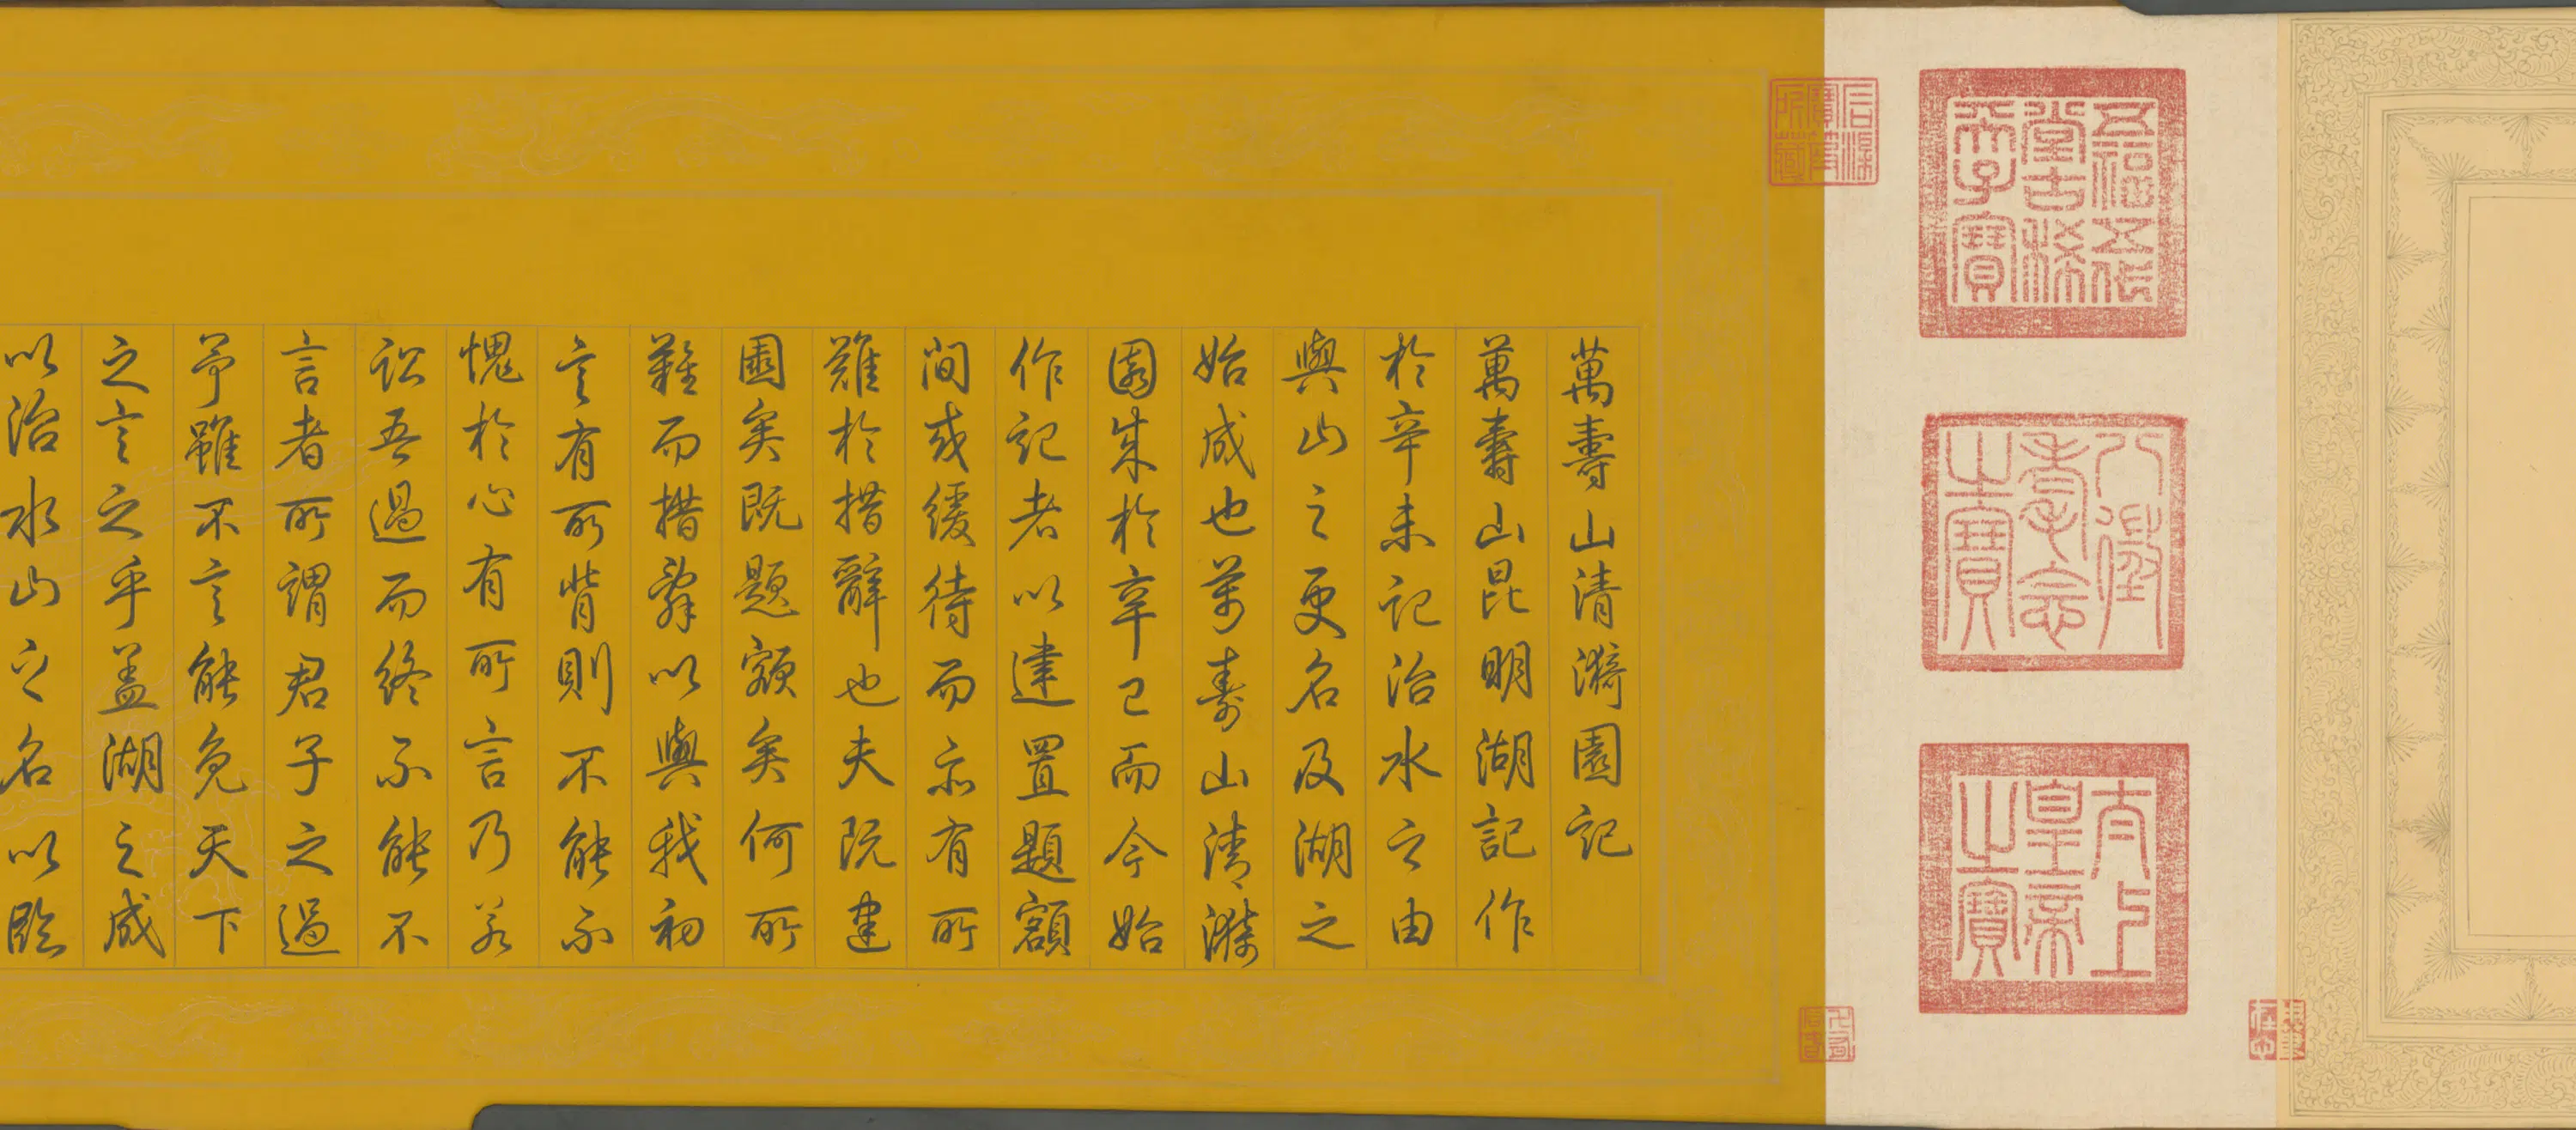 五福五代
堂古稀
天子寶
八徵
耄念
之寶
太上
皇帝
之寶
石渠
寶笈
所藏
萬壽山清漪園記
萬壽山昆明湖記作
於辛未記治水之由
與山之更名及湖之
始成也萬壽山清漪
園成於辛巳而今始
作記者以建置題額
間或緩待而亦有所
難於措辭也夫既建
園矣既題額矣何所
難而措辭以與我初
言有所背則不能不
愧於心有所言乃若
訟吾過而終不能不
言者所謂君子之過
予雖不言能免天下
之言之乎蓋湖之成
以治水山之名以臨